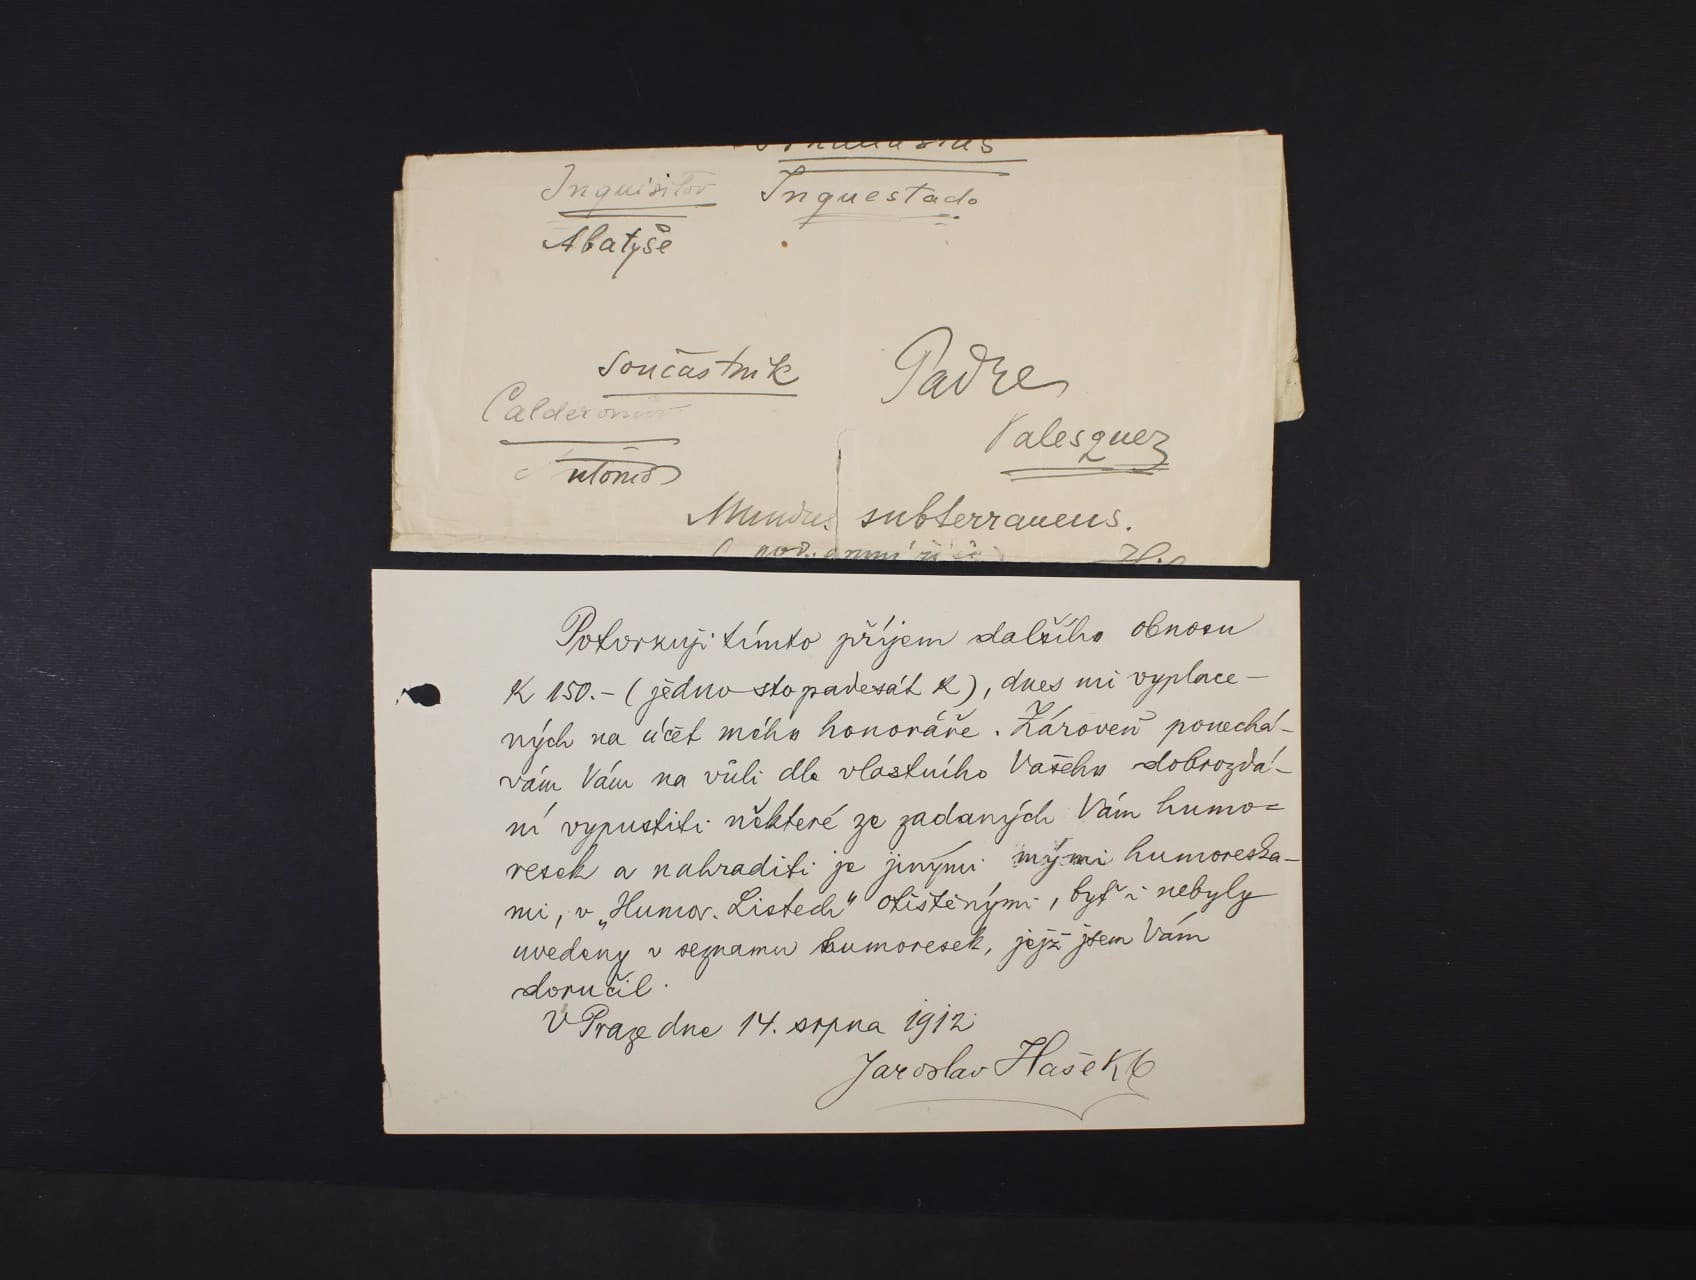 Inquisitor Inquestado
Abatyše
Součastník Padre
Calderonův Valesquez
Antonio
Mundus subterraneus.
Potvrzuji tímto příjem dalšího obnosu
K 150.- (jedno sto padesát K), dnes mi vyplace-
ných na účět mého honoráře. Zároveň ponechá-
vám Vám na vůli dle vlastního Vašeho dobrozdá-
ní vypustiti některé ze zadaných Vám humo=
resek a nahraditi je jinými mými humoreska-
mi, v „Humor. Listech" otištěnými, byť i nebyly
uvedeny v seznamu humoresek, jejž jsem Vám
doručil.
V Praze dne 14. srpna 1912
Jaroslav Hašek